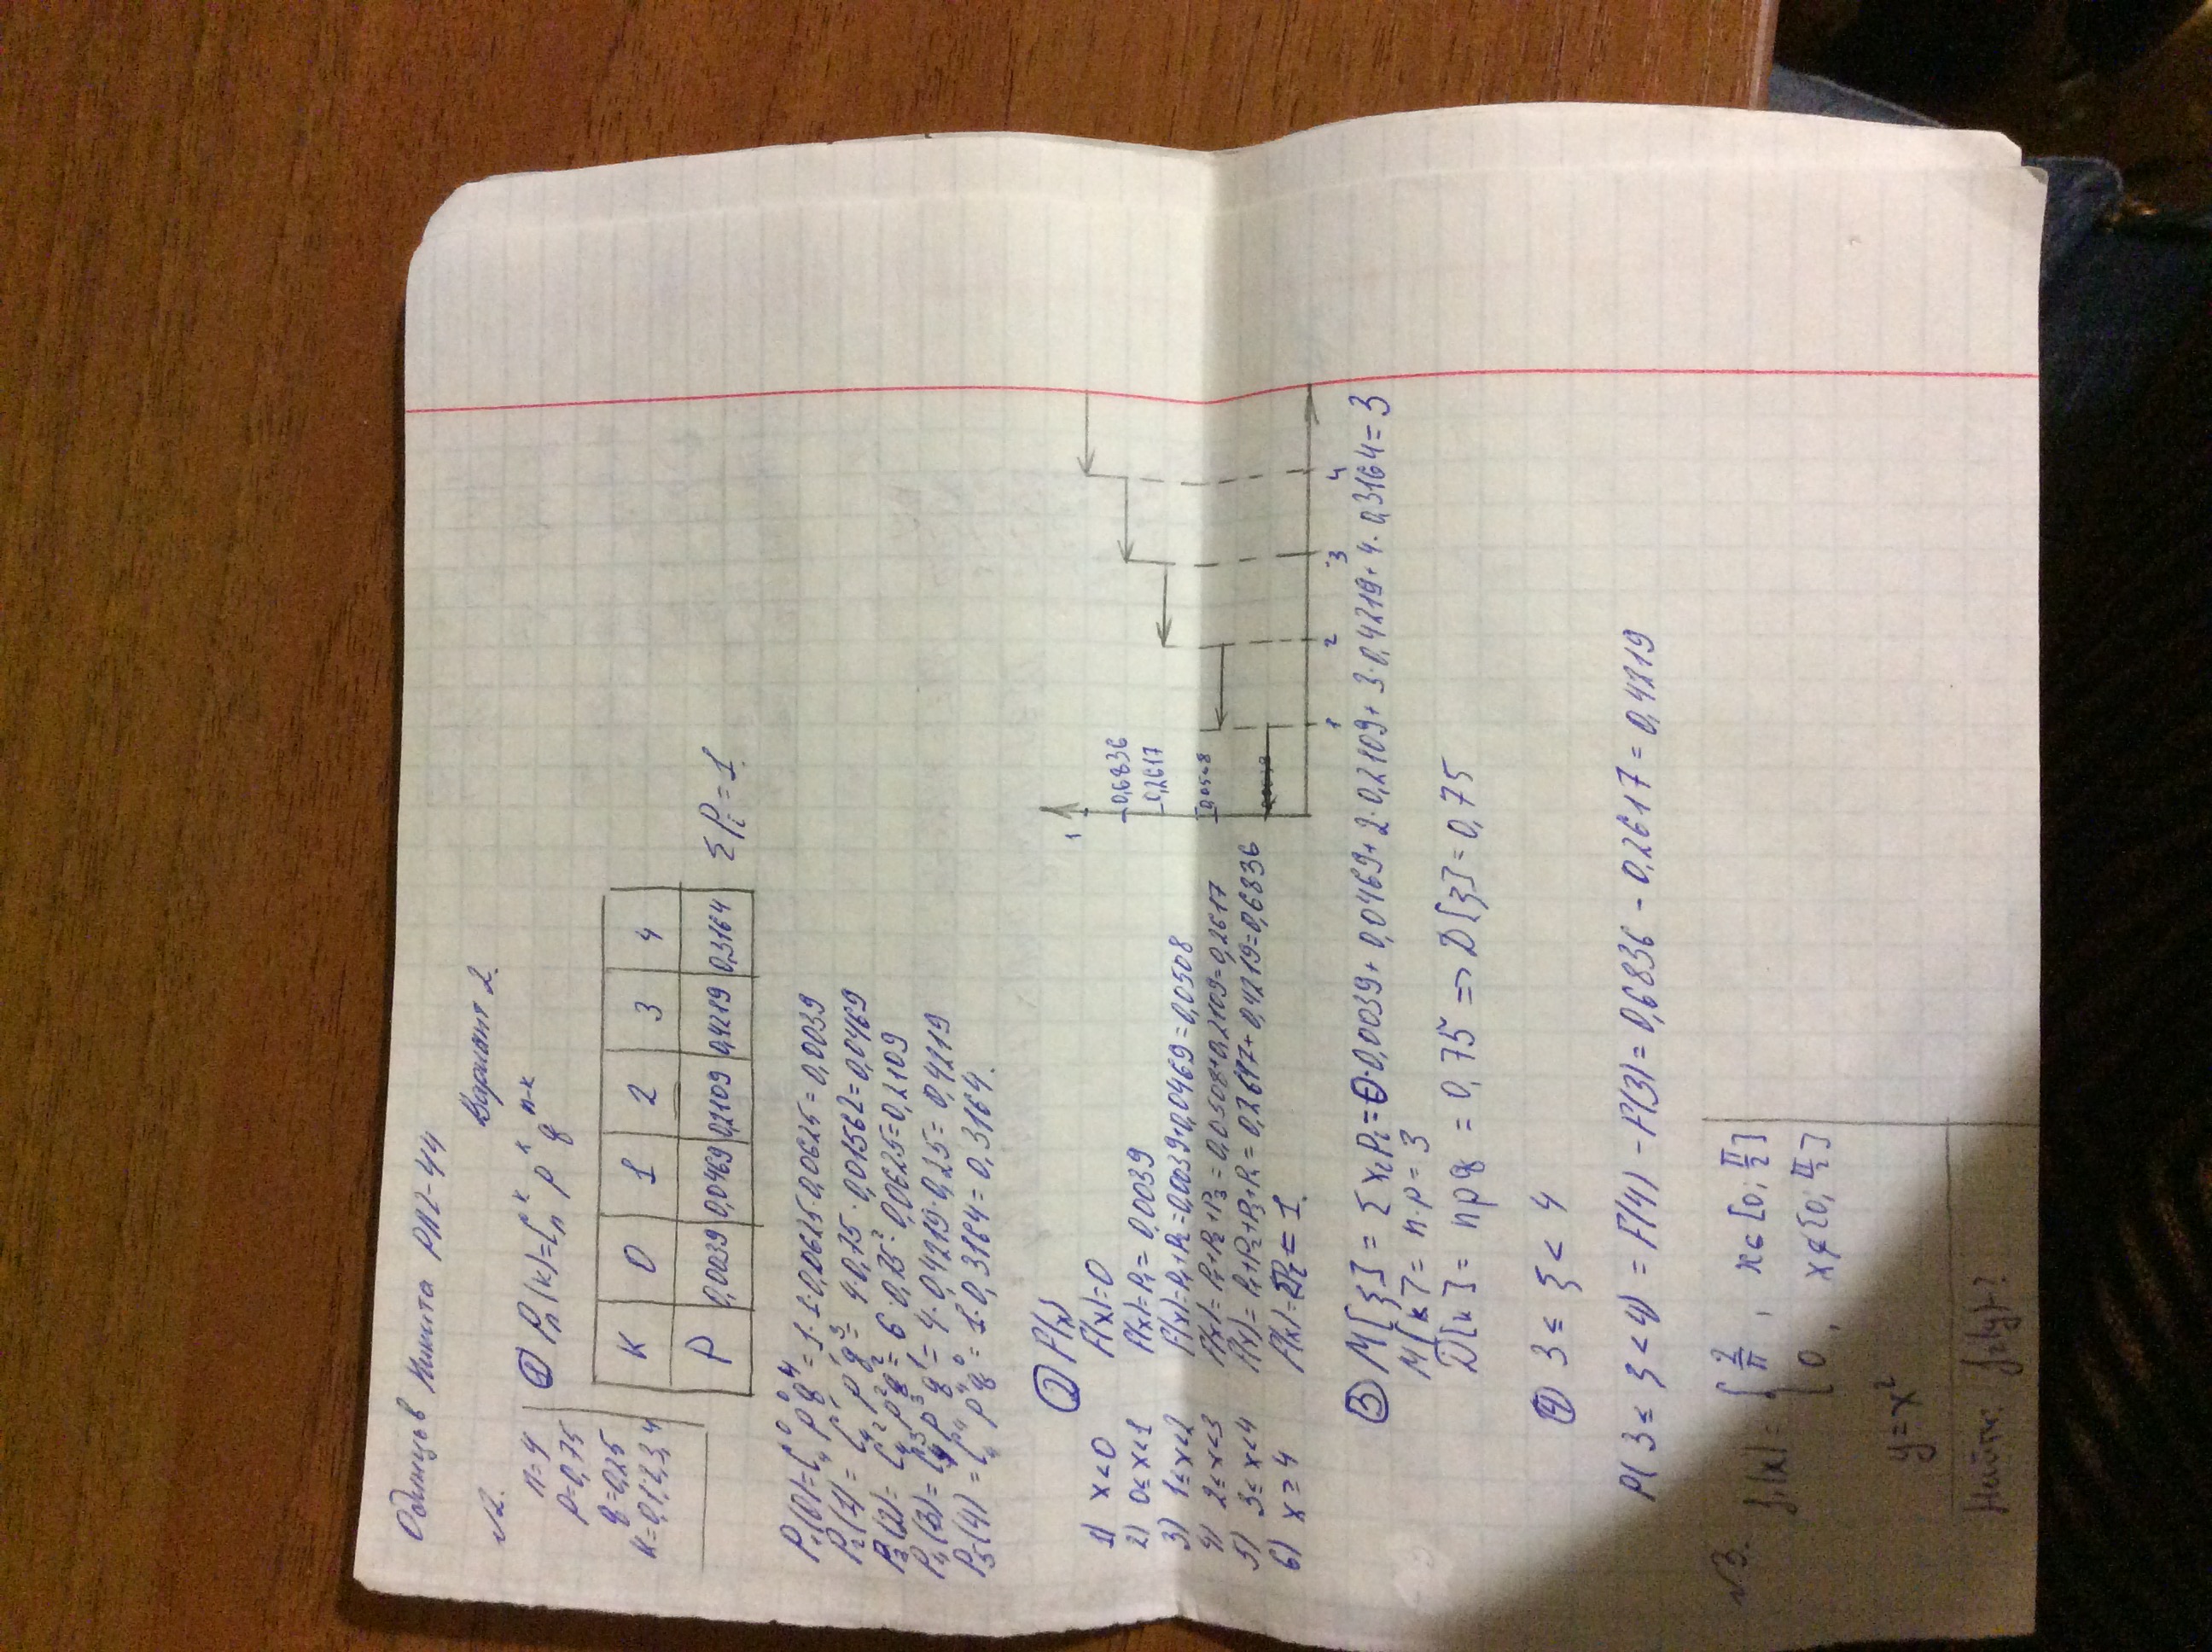 Одинцов Никита РЛ2-44
Вариант 2.
√2.
n=4
p=0,75
q=0,25
k=0,1,2,3,4
① Pₙ(k)=Cₙᵏ pᵏ qⁿ⁻ᵏ
K 0 1 2 3 4
P 0,0039 0,0469 0,2109 0,4219 0,3164
Σ Pᵢ = 1.
P₁(0)=C₄⁰ p⁰ q⁴ = 1·1·0,0625·0,0625=0,0039
P₂(1)= C₄¹ p¹ q³= 4·0,75·0,01562=0,0469
P₃(2)= C₄² p² q²= 6·0,75²·0,0625=0,2109
P₄(3)= C₄³ p³ q¹= 4·0,4219·0,25= 0,4219
P₅(4) = C₄⁴ p⁴ q⁰ = 1·0,3164= 0,3164.
② F(x)
1) x<0 F(x)=0
2) 0≤x<1 F(x)=P₁= 0,0039
3) 1≤x<2 F(x)=P₁+P₂=0,0039+0,0469=0,0508
4) 2≤x<3 F(x)= P₁+P₂+P₃ = 0,0508+0,2109=0,2617
5) 3≤x<4 F(x)= P₁+P₂+P₃+P₄= 0,2617+0,4219=0,6836
6) x≥4 F(x)=ΣPᵢ=1.
1
0,6836
0,2617
0,0508
1 2 3 4
③ M[ξ]= Σ xᵢPᵢ=0·0,0039+0,0469+2·0,2109+3·0,4219+4·0,3164=3
M[k]= n·p= 3
D[k]= npq = 0,75 => D[ξ]=0,75
④ 3≤ξ<4
P(3≤ξ<4) = F(4)-F(3)= 0,6836-0,2617=0,4219
√3. f₁(x)= { 2/π, x∈[0; π/2]
0, x∉[0; π/2]
y=x²
Найти: f₂(y)-?